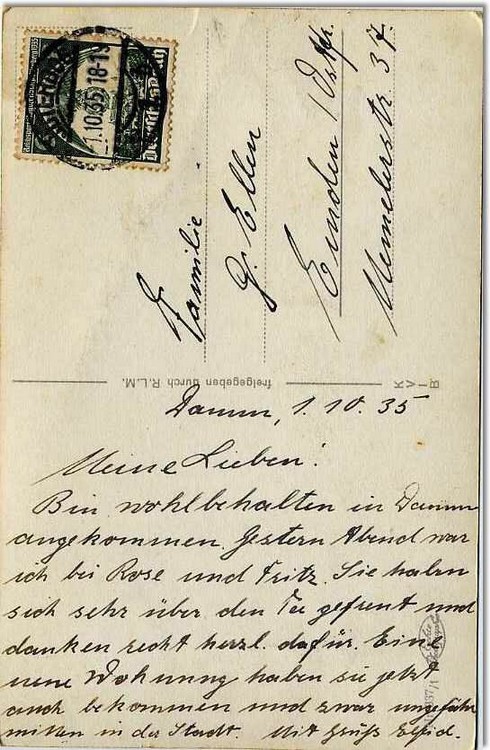 1.10.35 18-19
Deutsches Reich
Familie
G. Ellen
Emden / Ostfr.
Memelerstr. 37
freigegeben durch R.L.M.
K V I B
Damm, 1.10.35
Meine Lieben!
Bin wohlbehalten in Damm
angekommen. Gestern Abend war
ich bei Rose und Fritz. Sie haben
sich sehr über den Tee gefreut und
danken recht herzl. dafür. Eine
neue Wohnung haben sie jetzt
auch bekommen und zwar ungefähr
mitten in der Stadt. Mit Gruß Elfid.